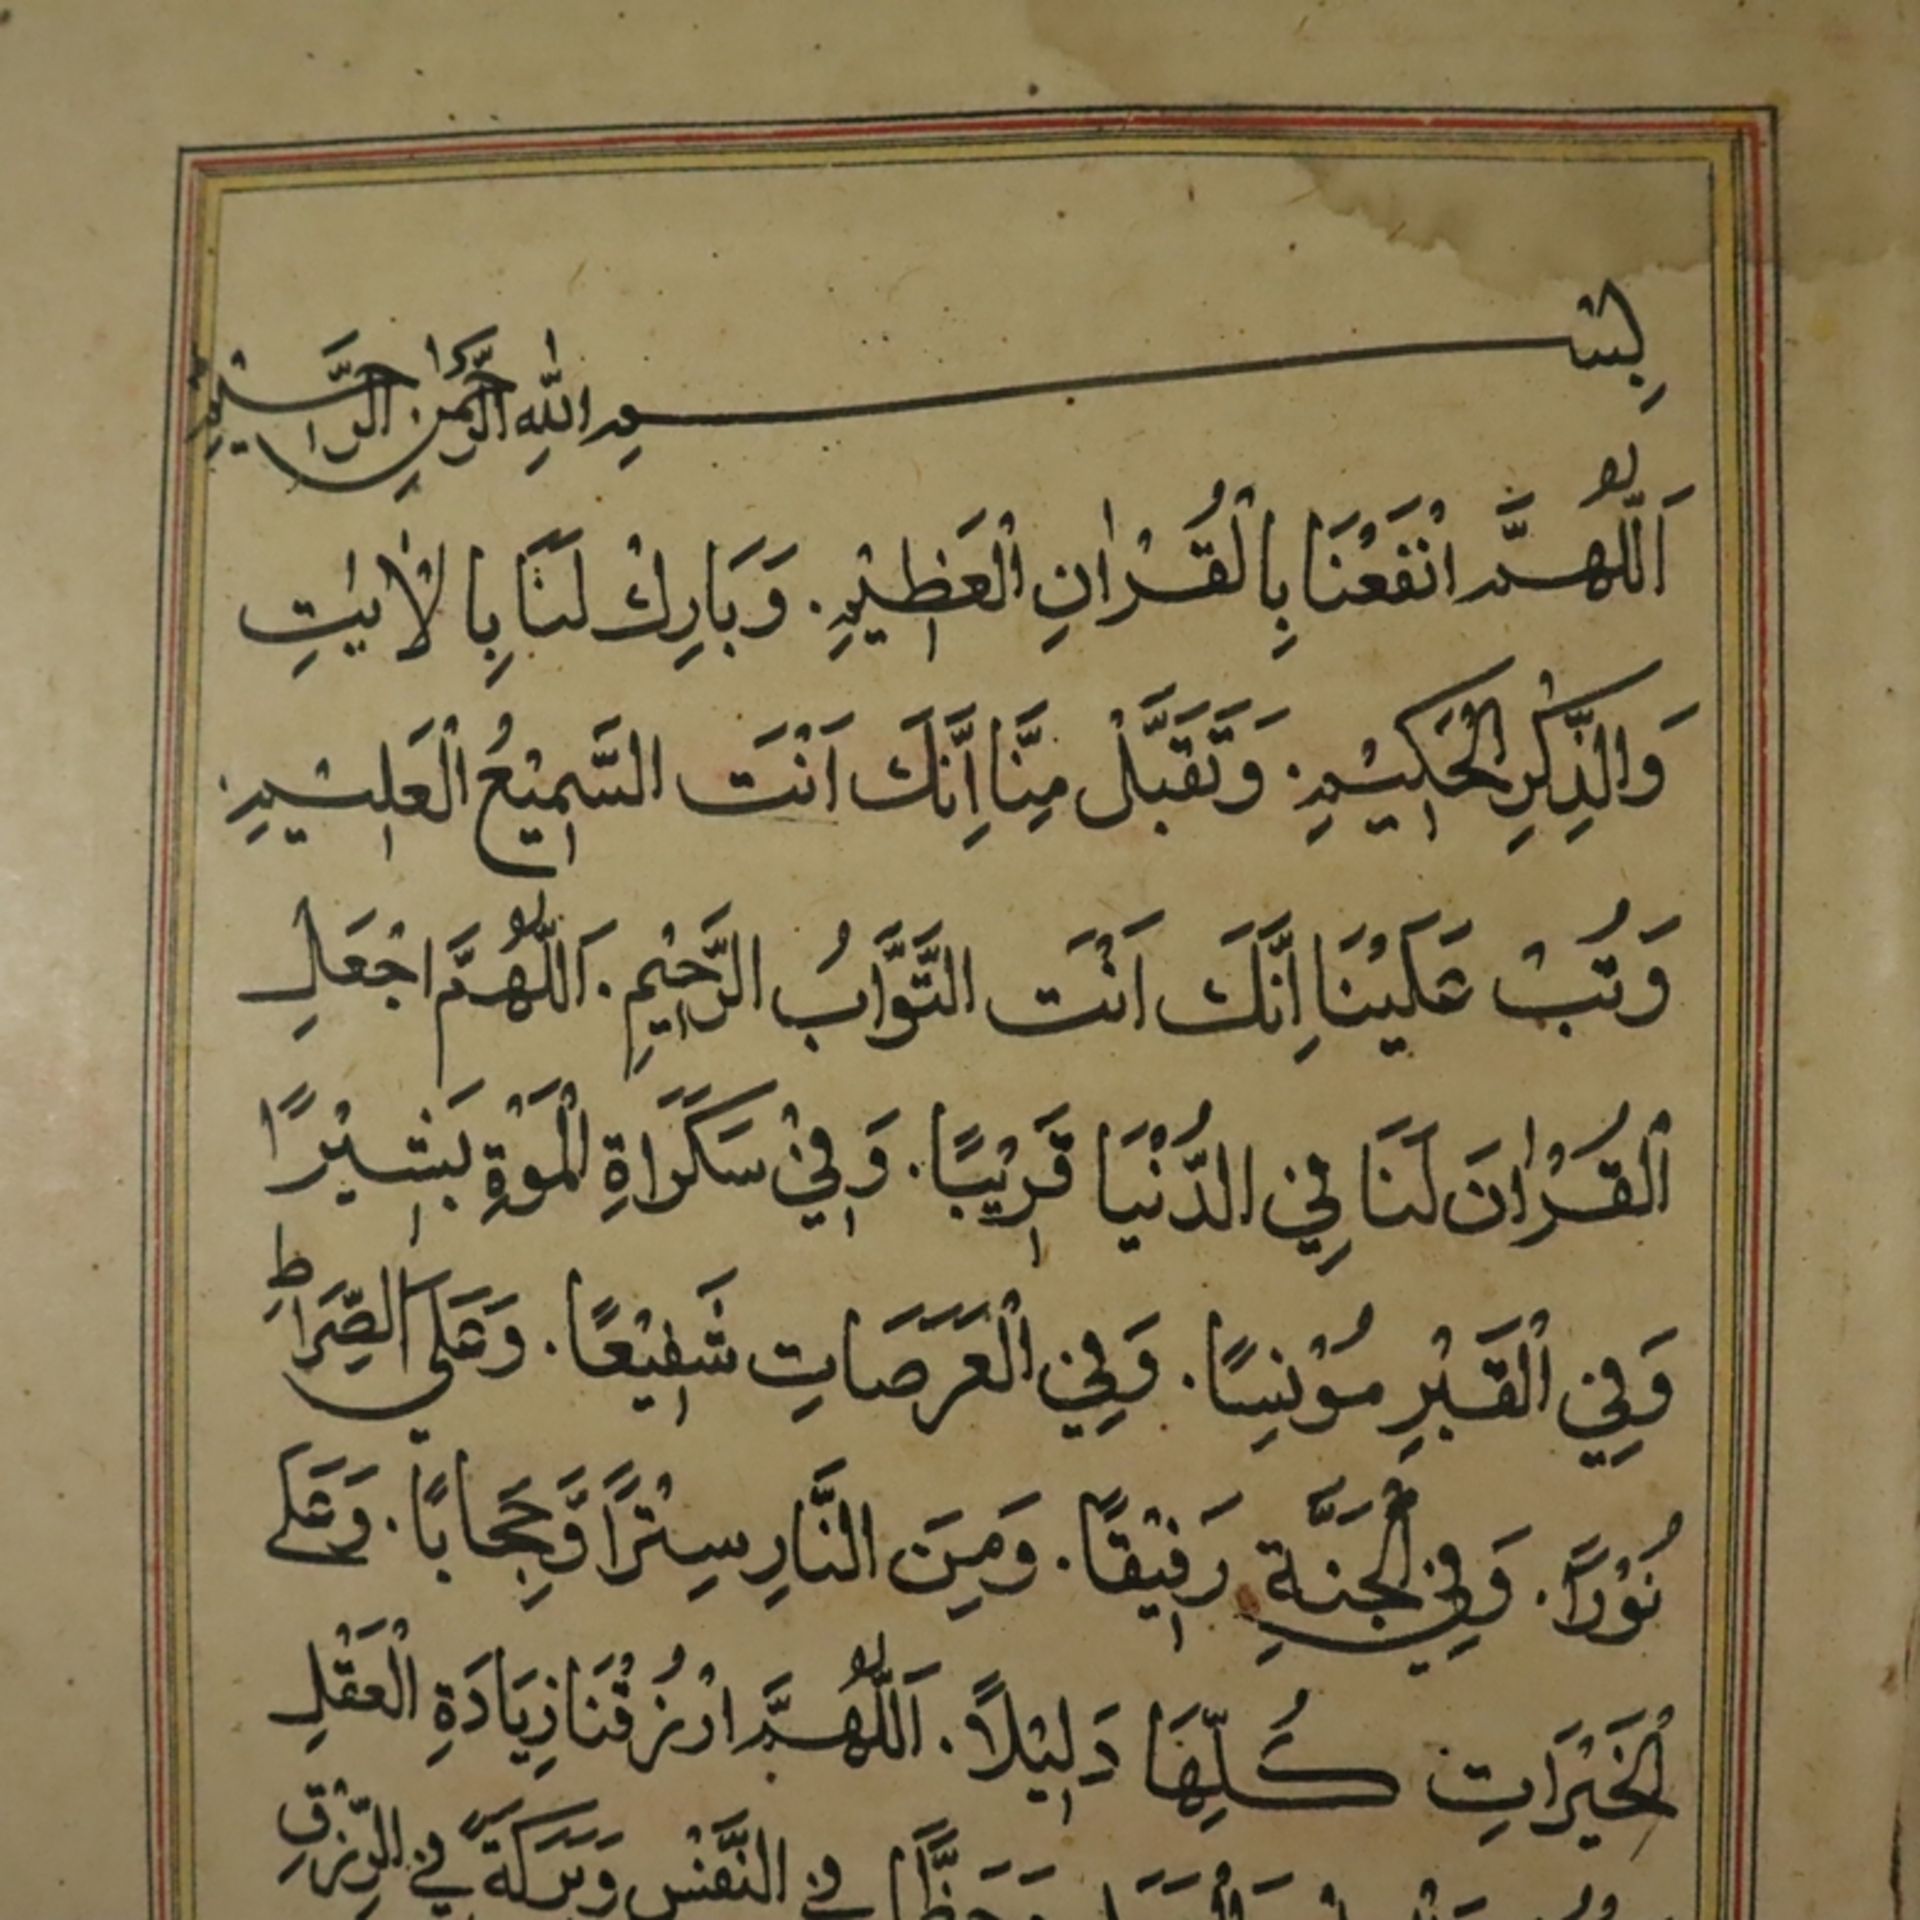 بِسْمِ اللّٰهِ الرَّحْمٰنِ الرَّحِيْمِ
اَللّٰهُمَّ انْفَعْنَا بِالْقُرْاٰنِ الْعَظِيْمِ. وَبَارِكْ لَنَا بِالْاٰيٰتِ
وَالذِّكْرِ الْحَكِيْمِ. وَتَقَبَّلْ مِنَّا اِنَّكَ اَنْتَ السَّمِيْعُ الْعَلِيْمِ.
وَتُبْ عَلَيْنَا اِنَّكَ اَنْتَ التَّوَّابُ الرَّحِيْمِ. اَللّٰهُمَّ اجْعَلِ
الْقُرْاٰنَ لَنَا فِي الدُّنْيَا قَرِيْبًا. وَفِيْ سَكَرَاةِ الْمَوْةِ بَشِيْرًا
وَفِي الْقَبْرِ مُوْنِسًا. وَفِي الْعَرَصَاتِ شَفِيْعًا. وَعَلَى الصِّرَاطِ
نُوْرًا. وَفِي الْجَنَّةِ رَفِيْقًا. وَمِنَ النَّارِ سِتْرًا وَّحِجَابًا. وَعَلَى
الْخَيْرَاتِ كُلِّهَا دَلِيْلًا. اَللّٰهُمَّ ارْزُقْنَا زِيَادَةِ الْعَقْلِ
وَحَظًّا فِي النَّفْسِ وَبَرَكَةً فِي الرِّزْقِ